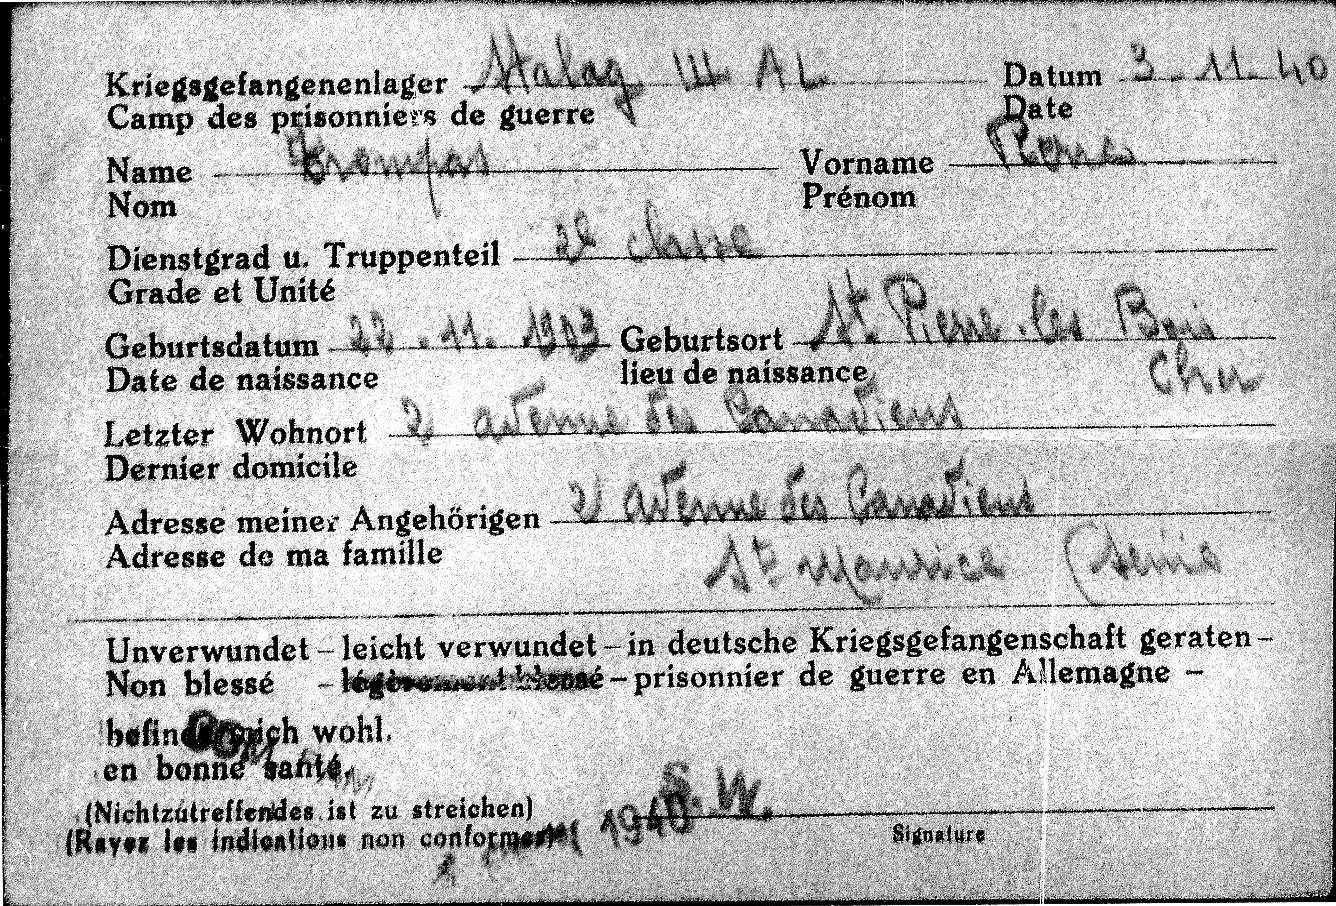 Kriegsgefangenenlager Stalag III A L Datum 3.11.40
Camp des prisonniers de guerre Date
Name Trompas Vorname Pierre
Nom Prénom
Dienstgrad u. Truppenteil 2e classe
Grade et Unité
Geburtsdatum 22.11.1903 Geburtsort St. Pierre les Bois
Date de naissance lieu de naissance Cher
Letzter Wohnort 2 avenue des Canadiens
Dernier domicile
Adresse meiner Angehörigen 2 avenue des Canadiens
Adresse de ma famille St Maurice (Seine
Unverwundet – leicht verwundet – in deutsche Kriegsgefangenschaft geraten –
Non blessé – légèrement blessé – prisonnier de guerre en Allemagne –
befinde mich wohl.
en bonne santé.
(Nichtzutreffendes ist zu streichen) S.W.
(Rayez les indications non conformes) 1940 Signature